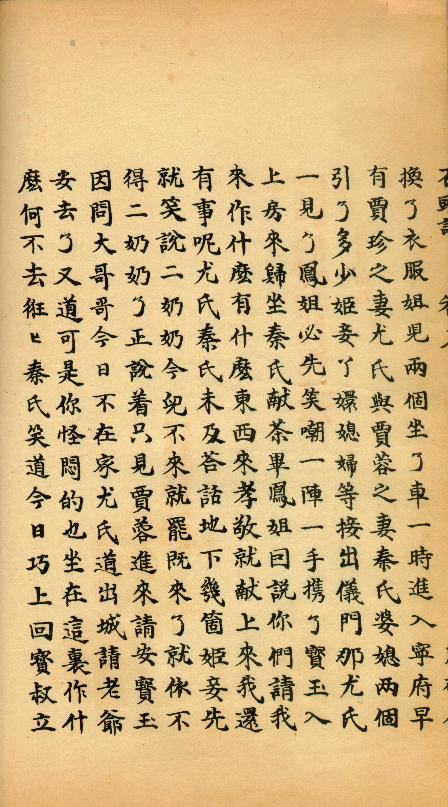 換了衣服姐兒兩個坐了車一時進入寧府早
有賈珍之妻尤氏與賈蓉之妻秦氏婆媳兩個
引了多少姬妾丫嬛媳婦等接出儀門那尤氏
一見了鳳姐必先笑嘲一陣一手攜了寶玉入
上房來歸坐秦氏献茶畢鳳姐因説你們請我
來作什麽有什麽東西來孝敬就献上來我還
有事呢尤氏秦氏未及答話地下幾箇姬妾先
就笑説二奶奶今兒不來就罷既來了就依不
得二奶奶了正説着只見賈蓉進來請安寳玉
因問大哥哥今日不在家尤氏道出城請老爺
安去了又道可是你怪悶的也坐在這裏作什
麽何不去俇〻秦氏笑道今日巧上回寳叔立